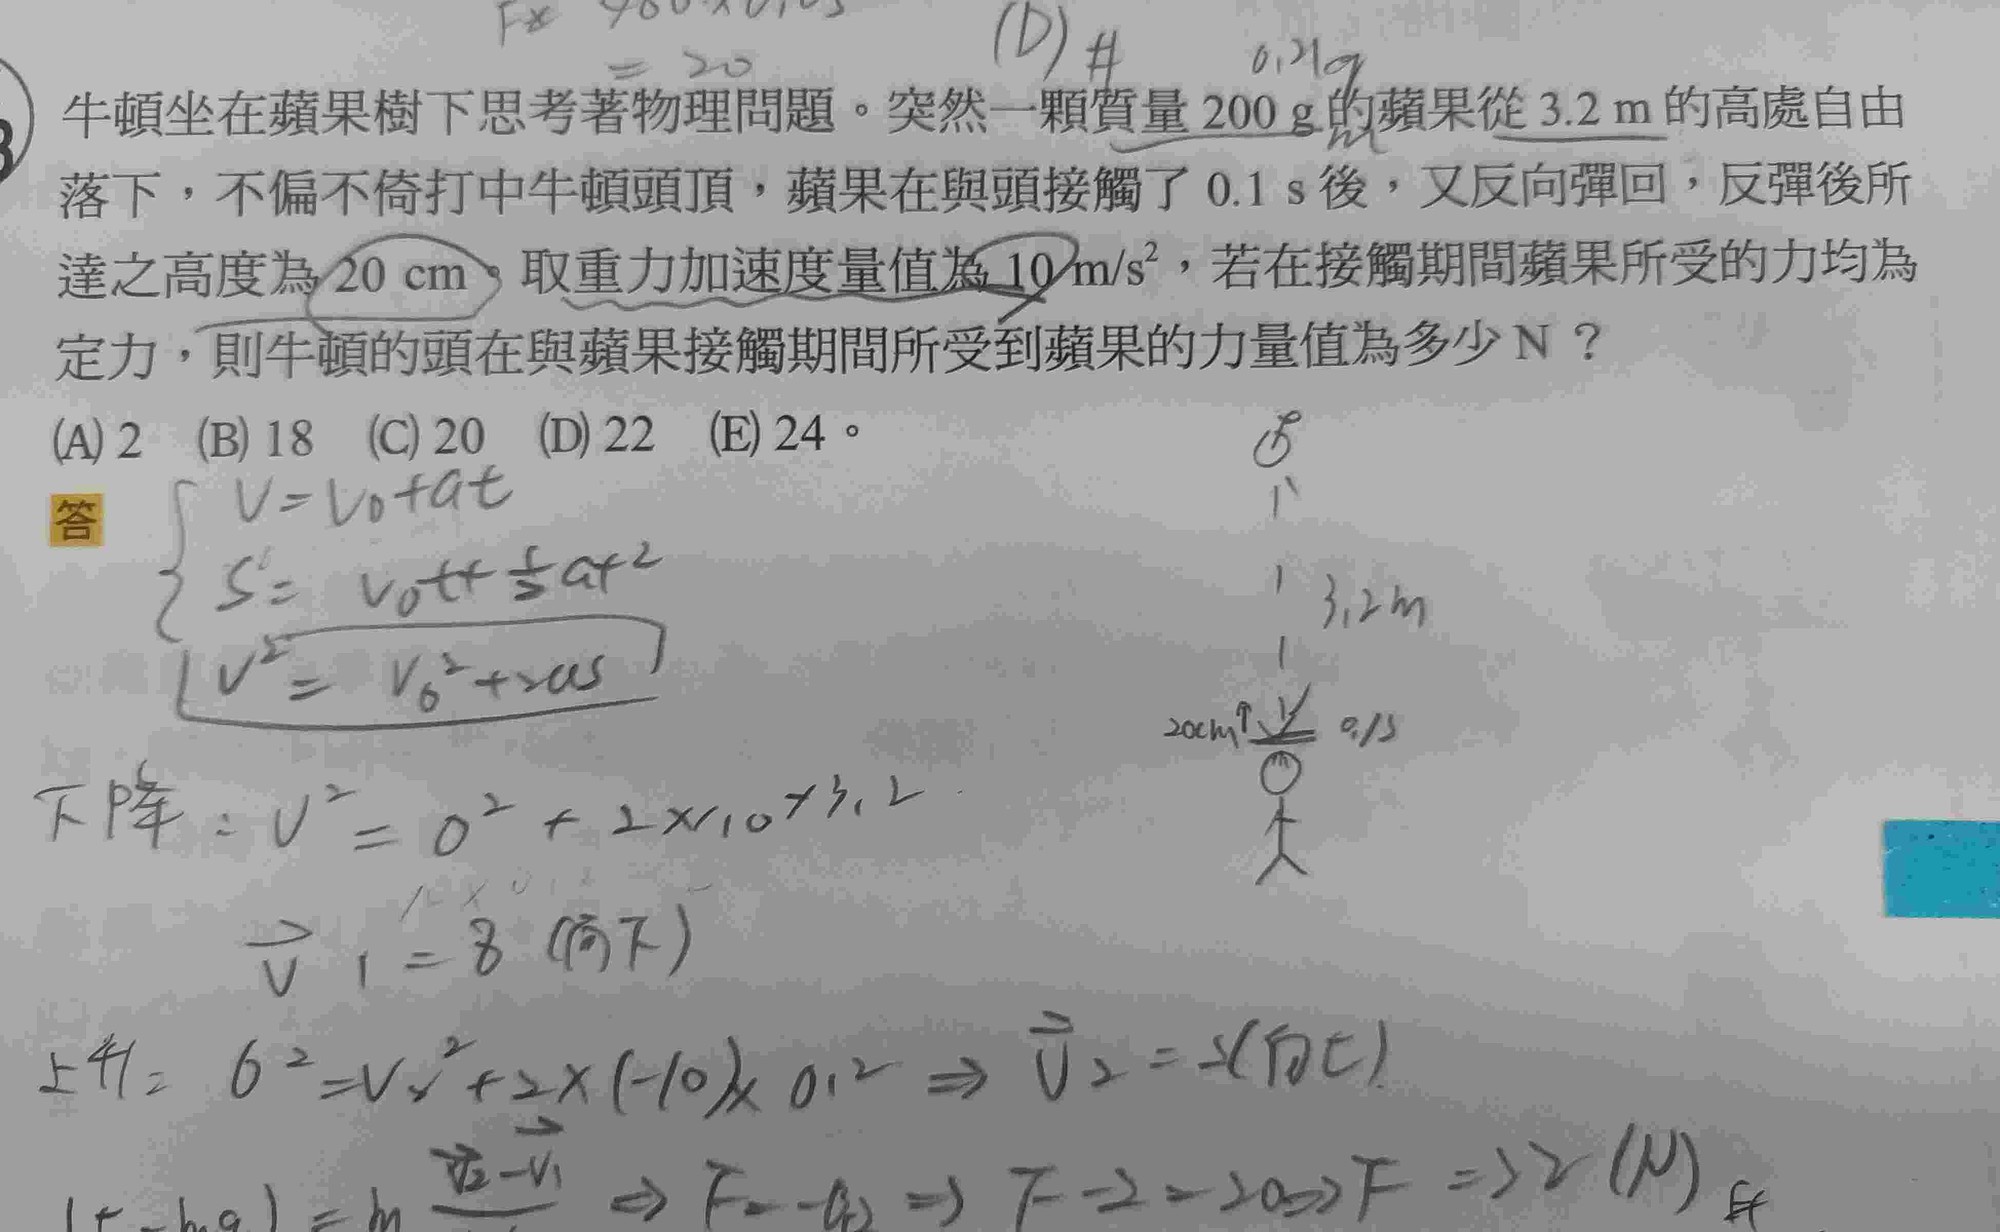 = 20
(D) #
牛頓坐在蘋果樹下思考著物理問題。突然一顆質量 200 g 的蘋果從 3.2 m 的高處自由
落下，不偏不倚打中牛頓頭頂，蘋果在與頭接觸了 0.1 s 後，又反向彈回，反彈後所
達之高度為 20 cm。取重力加速度量值為 10 m/s²，若在接觸期間蘋果所受的力均為
定力，則牛頓的頭在與蘋果接觸期間所受到蘋果的力量值為多少 N ？
(A) 2 (B) 18 (C) 20 (D) 22 (E) 24。
答
V = V₀ + at
S = V₀t + ½at²
V² = V₀² + 2as
3.2m
20cm↑ 0.1s
下降：V² = 0² + 2×10×3.2
V⃗1 = 8 (向下)
上升：0² = V₂² + 2×(-10)×0.2 ⇒ V⃗2 = 2(向上)
V⃗2 - V⃗1
= m ⇒ F - 2 = 20 ⇒ F = 22 (N) #